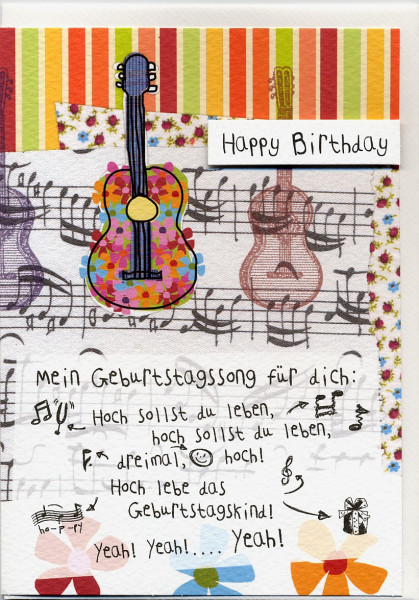 Happy Birthday
Mein Geburtstagssong für dich:
Hoch sollst du leben,
hoch sollst du leben,
dreimal, hoch!
Hoch lebe das
Geburtstagskind!
ha-p-py
Yeah! Yeah!.... Yeah!